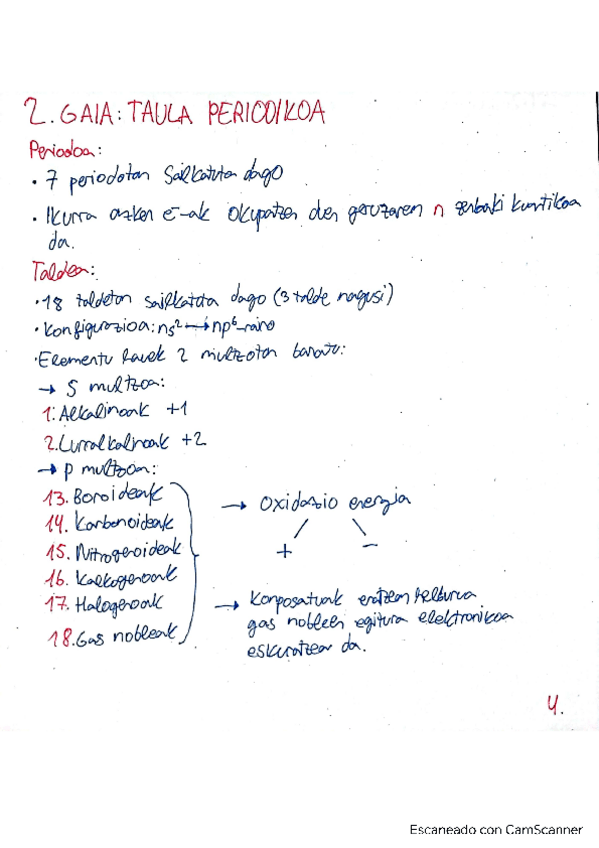 2. GAIA: TAULA PERIODIKOA
Periodoa:
· 7 periodotan sailkatuta dago
· Ikurra azken e⁻-ak okupatzen duen geruzaren n zenbaki kuantikoa
da.
Taldea:
· 18 taldetan sailkatuta dago (3 talde nagusi)
· Konfigurazioa: ns² → np⁶-raino
· Elementu hauek 2 multzotan banatu:
→ S multzoa:
1. Alkalinoak +1
2. Lurralkalinoak +2
→ p multzoa:
13. Boroideak
14. Karbonoideak
15. Nitrogenoideak
16. Kalkogenoak
17. Halogenoak
18. Gas nobleak
→ Oxidazio energia
+ −
→ Konposatuak eratzean helburua
gas nobleen egitura elektronikoa
eskuratzea da.
4.
Escaneado con CamScanner